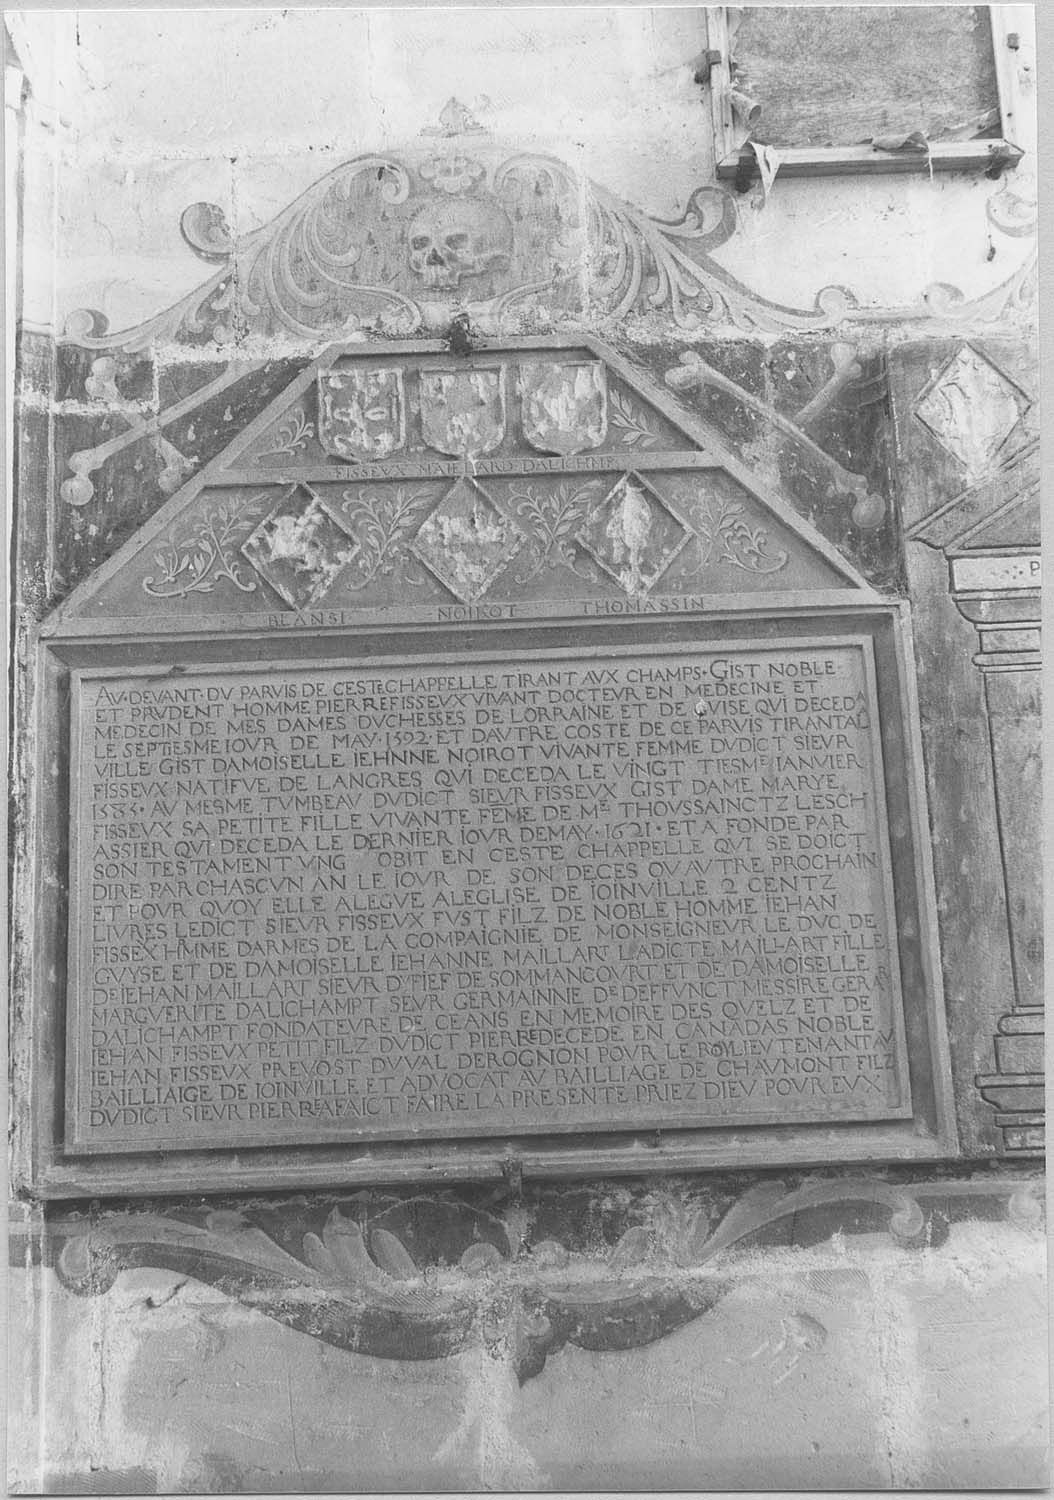 FISSEUX MAILLARD DALICHMP
BLANSI NOIROT THOMASSIN
AV·DEVANT·DV PARVIS DE CESTE CHAPPELLE TIRANT AVX CHAMPS·GIST NOBLE
ET PRVDENT HOMME PIERRE FISSEVX VIVANT DOCTEVR EN MEDECINE ET
MEDECIN DE MES DAMES DVCHESSES DE LORRAINE ET DE GVISE QVI DECEDA
LE SEPTIESME IOVR DE MAY·1592·ET DAVTRE COSTE DE CE PARVIS TIRANT AL
VILLE GIST DAMOISELLE IEHNNE NOIROT VIVANTE FEMME DVDICT SIEVR
FISSEVX NATIFVE DE LANGRES QVI DECEDA LE VINGT TIESME IANVIER
AV MESME TVMBEAV DVDICT SIEVR FISSEVX GIST DAME MARYE
FISSEVX SA PETITE FILLE VIVANTE FEME DE ME THOVSSAINCTZ LESCH
ASSIER QVI DECEDA LE DERNIER IOVR DEMAY·1621·ET A FONDE PAR
SON TESTAMENT VNG OBIT EN CESTE CHAPPELLE QVI SE DOICT
DIRE PAR CHASCVN AN LE IOVR DE SON DECES OV AVTRE PROCHAIN
ET POVR QVOY ELLE ALEGVE ALEGLISE DE IOINVILLE 2 CENTZ
LIVRES LEDICT SIEVR FISSEVX FVST FILZ DE NOBLE HOMME IEHAN
FISSEX HMME DARMES DE LA COMPAIGNIE DE MONSEIGNEVR LE DVC DE
GVYSE ET DE DAMOISELLE IEHANNE MAILLART LADICTE MAILLART FILLE
DE IEHAN MAILLART SIEVR DVFIEF DE SOMMANCOVRT ET DE DAMOISELLE
MARGVERITE DALICHAMPT SEVR GERMAINNE DE DEFFVNCT MESSIRE GERAR
DALICHAMPT FONDATEVRE DE CEANS EN MEMOIRE DES QVELZ ET DE
IEHAN FISSEVX PETIT FILZ DVDICT PIERRE DECEDE EN CANADAS NOBLE
IEHAN FISSEVX PREVOST DVVAL DEROGNON POVR LE ROY LIEVTENANT AV
BAILLIAIGE DE IOINVILLE ET ADVOCAT AV BAILLIAGE DE CHAVMONT FILZ
DVDICT SIEVR PIERRE A FAICT FAIRE LA PRESENTE PRIEZ DIEV POVR EVX